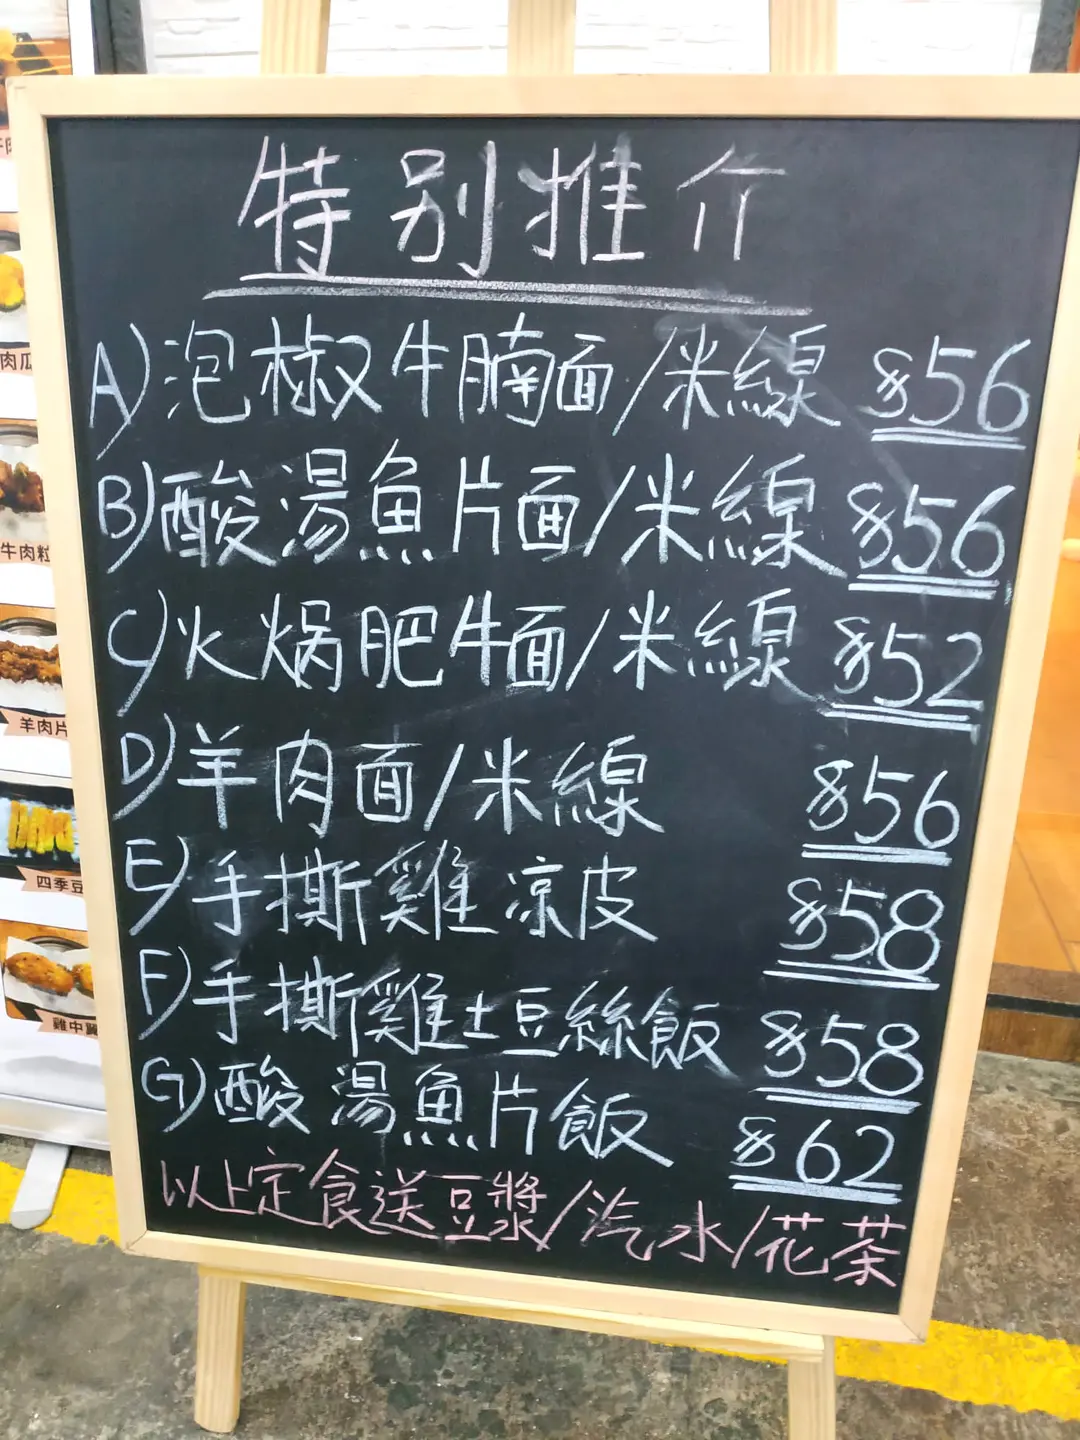 特别推介
A) 泡椒牛腩面/米線 $56
B) 酸湯魚片面/米線 $56
C) 火焗肥牛面/米線 $52
D) 羊肉面/米線 $56
E) 手撕雞凉皮 $58
F) 手撕雞土豆絲飯 $58
G) 酸湯魚片飯 $62
以上定食送豆漿/汽水/花茶
牛肉粒
羊肉片
四季豆
雞中翼